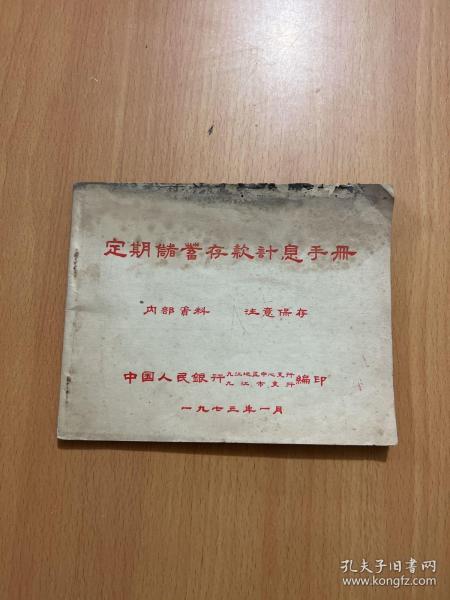 定期儲蓄存款計息手冊
内部資料 注意保存
中国人民銀行九江地区中心支行九江市支行編印
一九七三年一月
孔夫子旧书网
www.kongfz.com